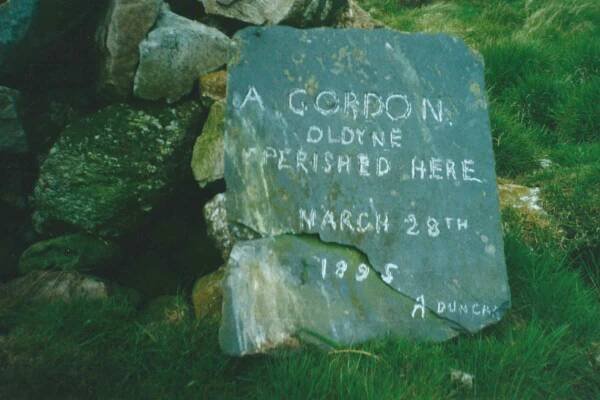 A GORDON.
OLDYNE
PERISHED HERE
MARCH 28TH
1895
A DUNCAN